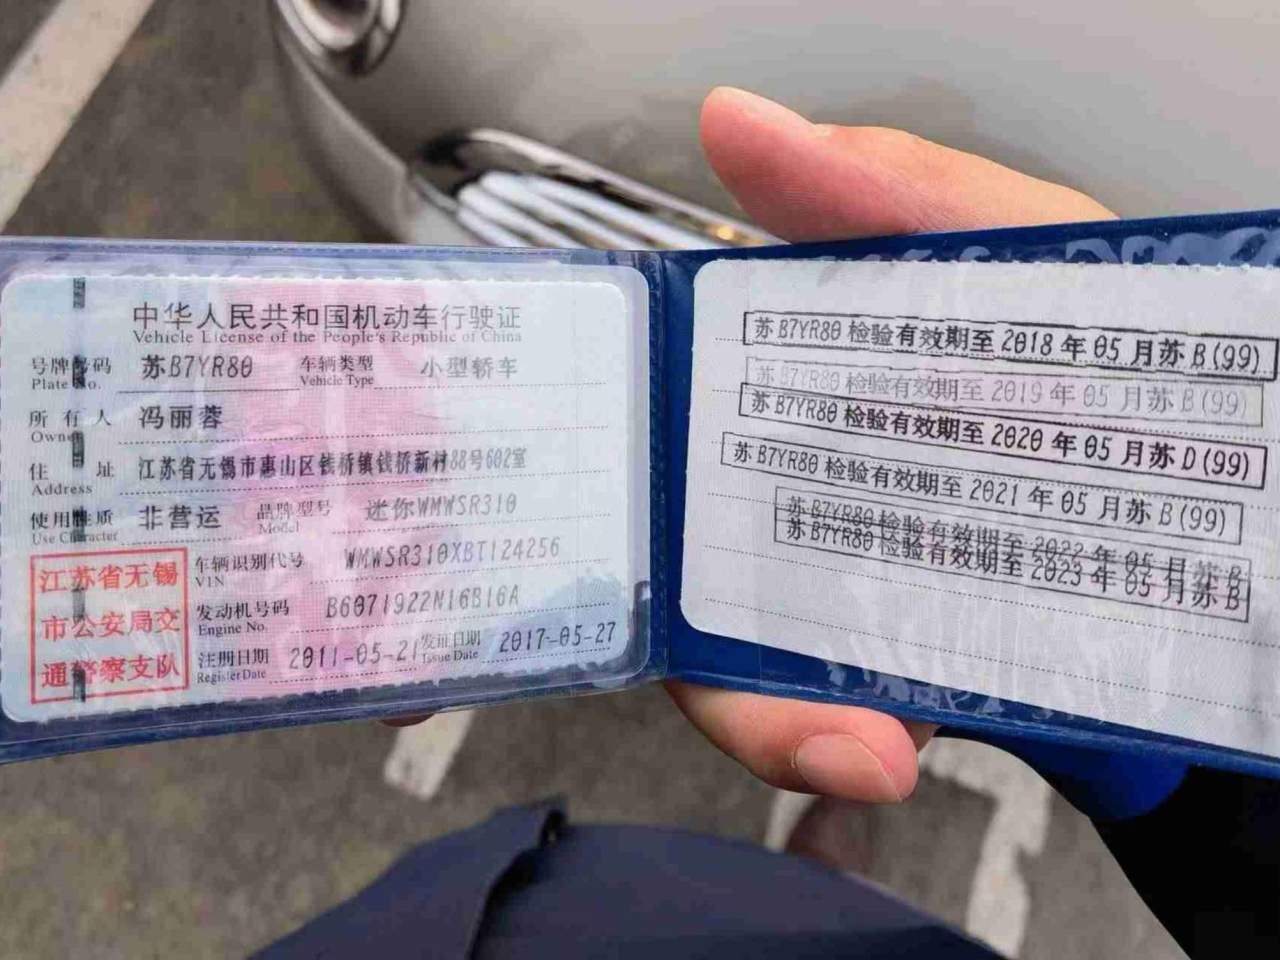 中华人民共和国机动车行驶证
Vehicle License of the People's Republic of China
号牌号码 苏B7YR80 车辆类型 小型轿车
Plate No. Vehicle Type
所有人 冯丽蓉
Owner
住址 江苏省无锡市惠山区钱桥镇钱桥新村88号602室
Address
使用性质 非营运 品牌型号 迷你WMWSR310
Use Character Model
车辆识别代号 WMWSR310XBT124256
VIN
发动机号码 B6071922N16B16A
Engine No.
注册日期 2011-05-21 发证日期 2017-05-27
Register Date Issue Date
江苏省无锡
市公安局交
通警察支队
苏B7YR80检验有效期至2018年05月苏B(99)
苏B7YR80检验有效期至2019年05月苏B(99)
苏B7YR80检验有效期至2020年05月苏D(99)
苏B7YR80检验有效期至2021年05月苏B(99)
苏B7YR80检验有效期至2022年05月苏B
苏B7YR80检验有效期至2023年05月苏B